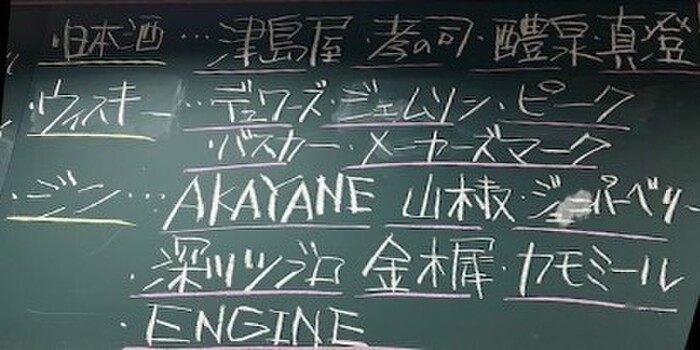 ・日本酒…津島屋・孝の司・醴泉・真澄
・ウィスキー…デュワーズ・ジェムソン・ピーク
・バスカー・メーカーズマーク
・ジン…AKAYANE 山椒・ジュニパーベリー
・深ツツジロ 金木犀・カモミール
・ENGINE